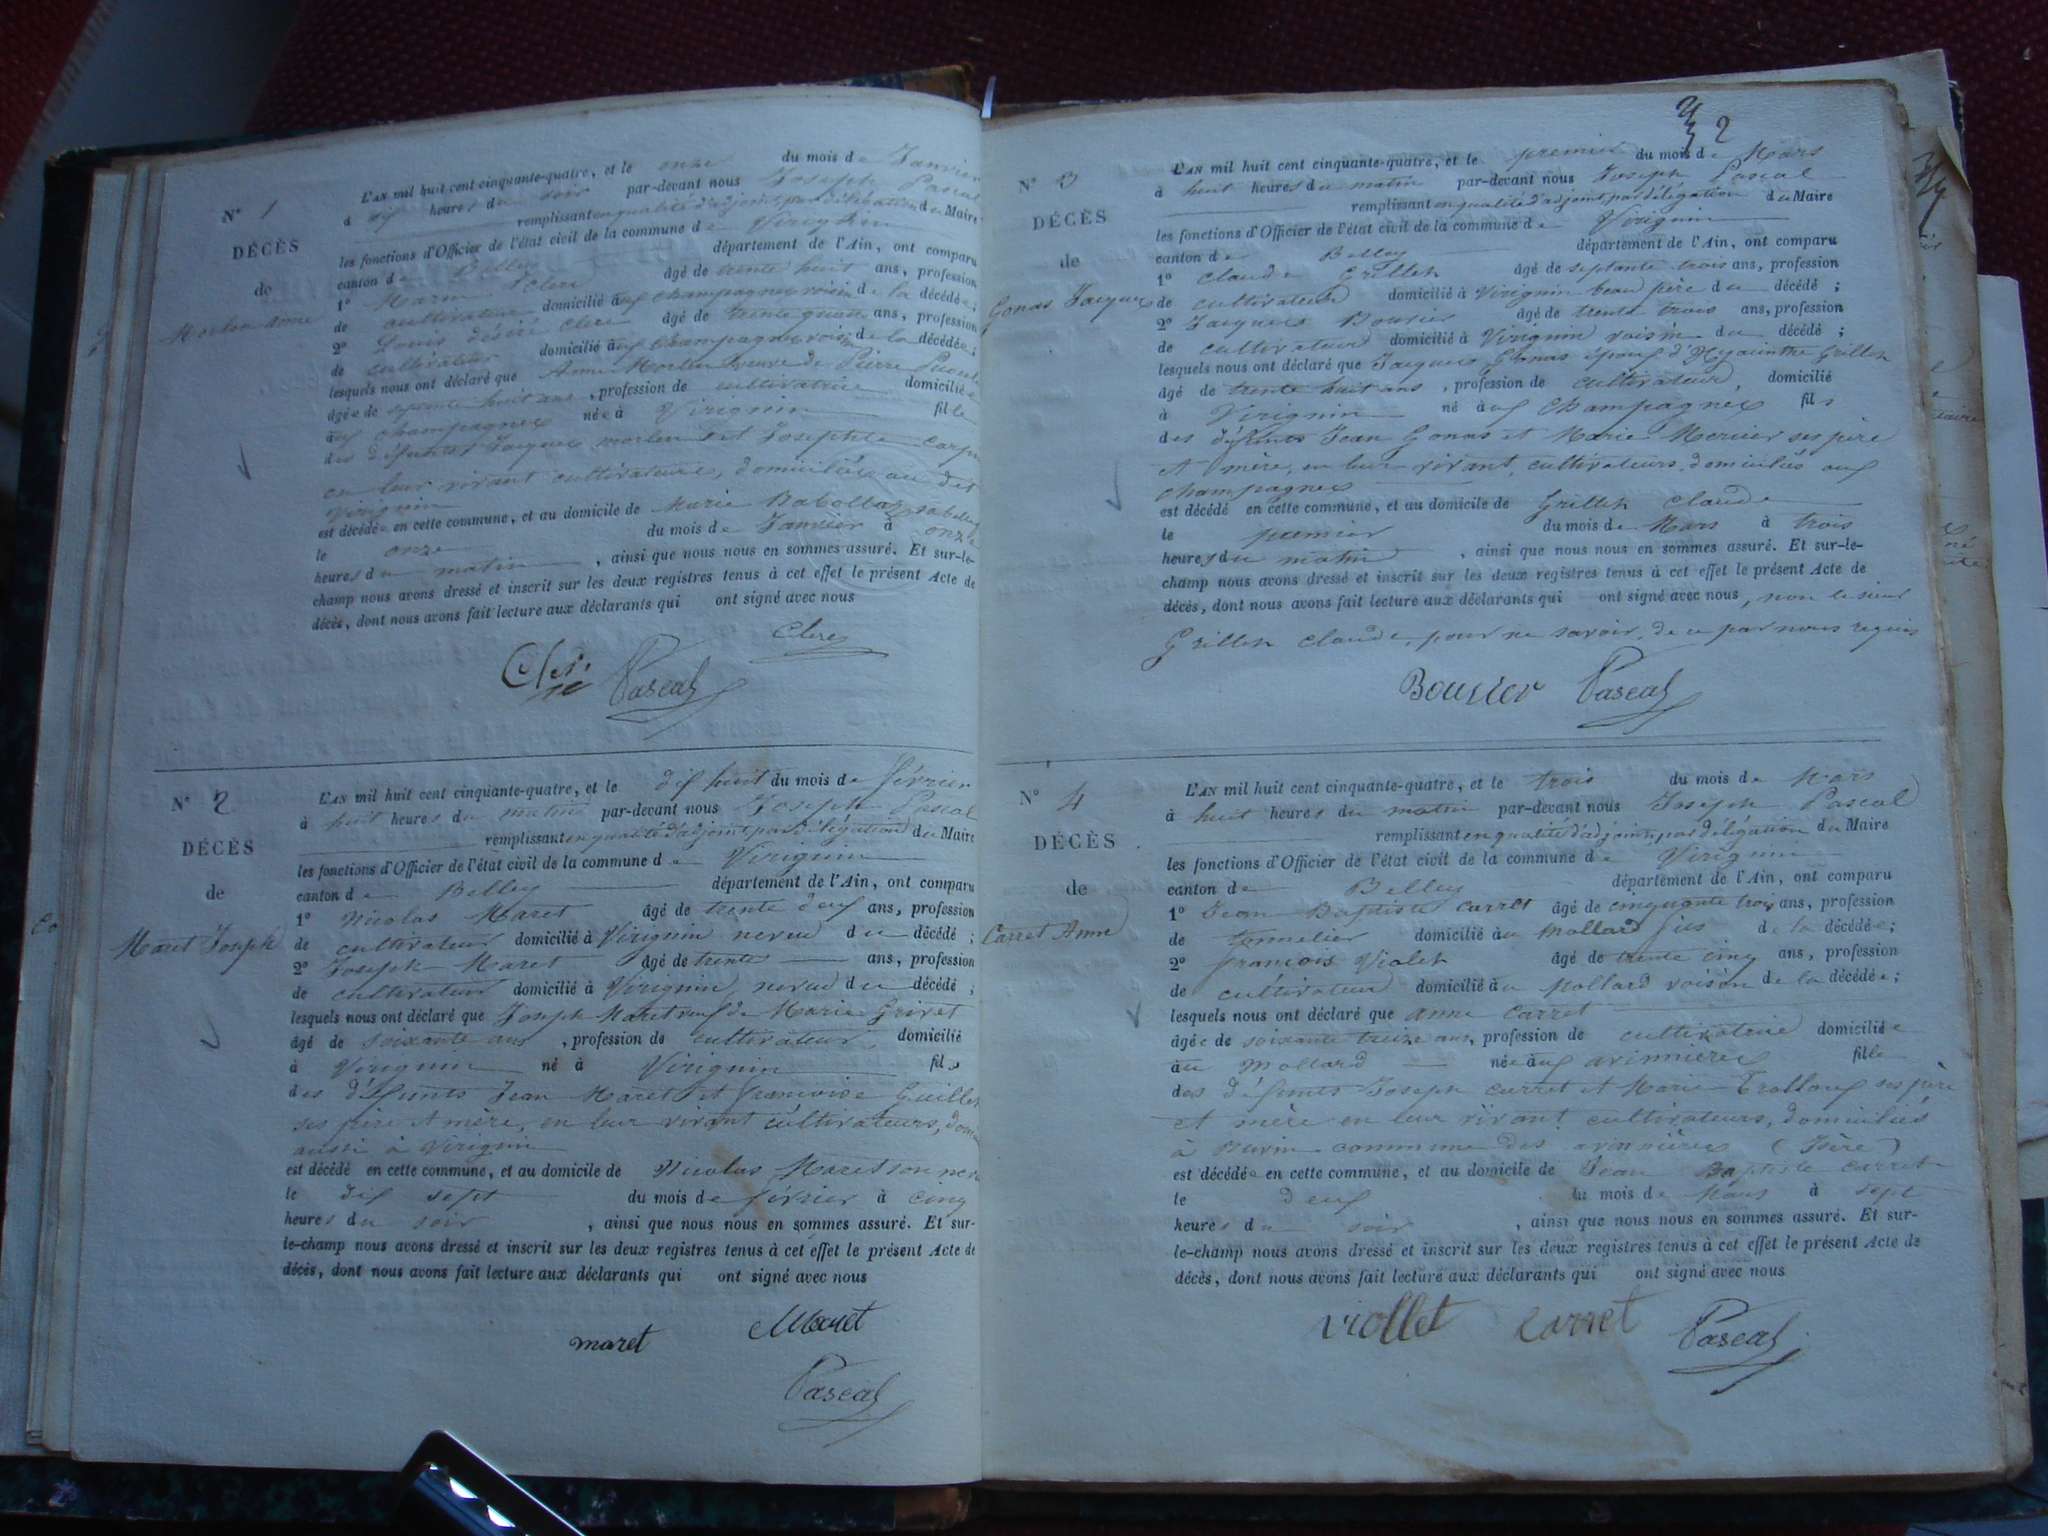 N° 1
DÉCÈS
de
Morlin Anne
L'AN mil huit cent cinquante-quatre, et le onze du mois de Janvier
à six heures du soir par-devant nous Joseph Pascal
remplissant en qualité d'adjoint, par délégation du Maire
les fonctions d'Officier de l'état civil de la commune de Virignin
canton de Belley département de l'Ain, ont comparu
1° Clerc âgé de trente huit ans, profession
de cultivateur domicilié aux champagnes voisin de la décédée;
2° Louis désiré Clerc âgé de trente quatre ans, profession
de cultivateur domicilié aux champagnes voisin de la décédée;
lesquels nous ont déclaré que Anne Morlin veuve de Pierre
âgée de septante huit ans, profession de cultivatrice domiciliée
aux champagnes née à Virignin fille
des défunts Jacques morlin et Josephte
en leur vivant cultivateurs, domiciliés au dit
Virignin
est décédée en cette commune, et au domicile de Marie
le onze du mois de Janvier à onze
heures du matin, ainsi que nous nous en sommes assuré. Et sur-le-
champ nous avons dressé et inscrit sur les deux registres tenus à cet effet le présent Acte de
décès, dont nous avons fait lecture aux déclarants qui ont signé avec nous
Clerc
Pascal
N° 2
DÉCÈS
de
Maret Joseph
L'AN mil huit cent cinquante-quatre, et le dix huit du mois de février
à huit heures du matin par-devant nous Joseph Pascal
remplissant en qualité d'adjoint, par délégation du Maire
les fonctions d'Officier de l'état civil de la commune de Virignin
canton de Belley département de l'Ain, ont comparu
1° Nicolas Maret âgé de trente deux ans, profession
de cultivateur domicilié à Virignin neveu du décédé;
2° Joseph Maret âgé de trente ans, profession
de cultivateur domicilié à Virignin, neveu du décédé;
lesquels nous ont déclaré que Joseph Maret veuf de Marie Grivet
âgé de soixante ans, profession de cultivateur, domicilié
à Virignin né à Virignin fils
des défunts Jean Maret et françoise Guillet
ses père et mère, en leur vivant cultivateurs,
aussi à Virignin
est décédé en cette commune, et au domicile de Nicolas Maret son neveu
le dix sept du mois de février à cinq
heures du soir, ainsi que nous nous en sommes assuré. Et sur-
le-champ nous avons dressé et inscrit sur les deux registres tenus à cet effet le présent Acte de
décès, dont nous avons fait lecture aux déclarants qui ont signé avec nous
maret Maret
Pascal
2
N° 3
DÉCÈS
de
Gonas Jacques
L'AN mil huit cent cinquante-quatre, et le premier du mois de Mars
à huit heures du matin par-devant nous Joseph Pascal
remplissant en qualité d'adjoint, par délégation du Maire
les fonctions d'Officier de l'état civil de la commune de Virignin
canton de Belley département de l'Ain, ont comparu
1° Claude Grillet âgé de septante trois ans, profession
de cultivateur domicilié à Virignin beau père du décédé;
2° Jacques Bouvier âgé de trente trois ans, profession
de cultivateur domicilié à Virignin voisin du décédé;
lesquels nous ont déclaré que Jacques Gonas époux d'Hyacinthe Grillet
âgé de trente huit ans, profession de cultivateur, domicilié
à Virignin né aux Champagnes fils
des défunts Jean Gonas et Marie Mercier ses père
et mère, en leur vivant, cultivateurs, domiciliés aux
champagnes
est décédé en cette commune, et au domicile de Grillet Claude
le premier du mois de Mars à trois
heures du matin, ainsi que nous nous en sommes assuré. Et sur-le-
champ nous avons dressé et inscrit sur les deux registres tenus à cet effet le présent Acte de
décès, dont nous avons fait lecture aux déclarants qui ont signé avec nous, non le sieur
Grillet claude, pour ne savoir, de ce par nous requis
Bouvier Pascal
N° 4
DÉCÈS
de
Carret Anne
L'AN mil huit cent cinquante-quatre, et le trois du mois de Mars
à huit heures du matin par-devant nous Joseph Pascal
remplissant en qualité d'adjoint, par délégation du Maire
les fonctions d'Officier de l'état civil de la commune de Virignin
canton de Belley département de l'Ain, ont comparu
1° Jean Baptiste carret âgé de cinquante trois ans, profession
de tonnelier domicilié au Mollard de la décédée;
2° françois Violet âgé de trente cinq ans, profession
de cultivateur domicilié au Mollard voisin de la décédée;
lesquels nous ont déclaré que anne Carret
âgée de soixante treize ans, profession de cultivatrice domiciliée
au Mollard née aux avinnières fille
des défunts Joseph carret et Marie ses père
et mère en leur vivant cultivateurs, domiciliés
à commune des avinnières (Isère)
est décédée en cette commune, et au domicile de Jean Baptiste carret
le deux du mois de Mars à sept
heures du soir, ainsi que nous nous en sommes assuré. Et sur-
le-champ nous avons dressé et inscrit sur les deux registres tenus à cet effet le présent Acte de
décès, dont nous avons fait lecture aux déclarants qui ont signé avec nous
viollet carret Pascal